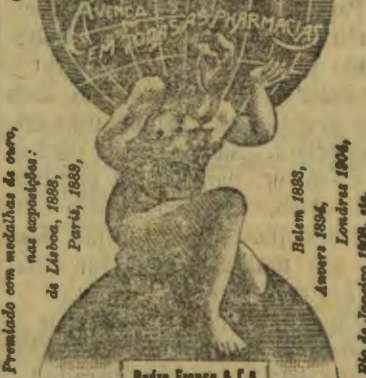 Á VENDA
EM TODAS AS PHARMACIAS
Premiado com medalhas de ouro,
nas exposições:
de Lisboa, 1888,
Paris, 1889,
Belem 1893,
Anvers 1894,
Londres 1904,
Rio de Janeiro 1908, etc.
Pedro Franco & C.a